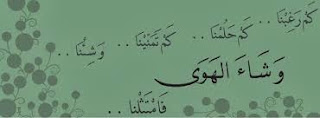 كَمْ رَغِبْنَا .. كَمْ حَلُمْنَا .. كَمْ تَمَنَّيْنَا .. وَشِئْنَا ..
وَشَاءَ الهَوَى
فَامْتَثَلْنَا ..